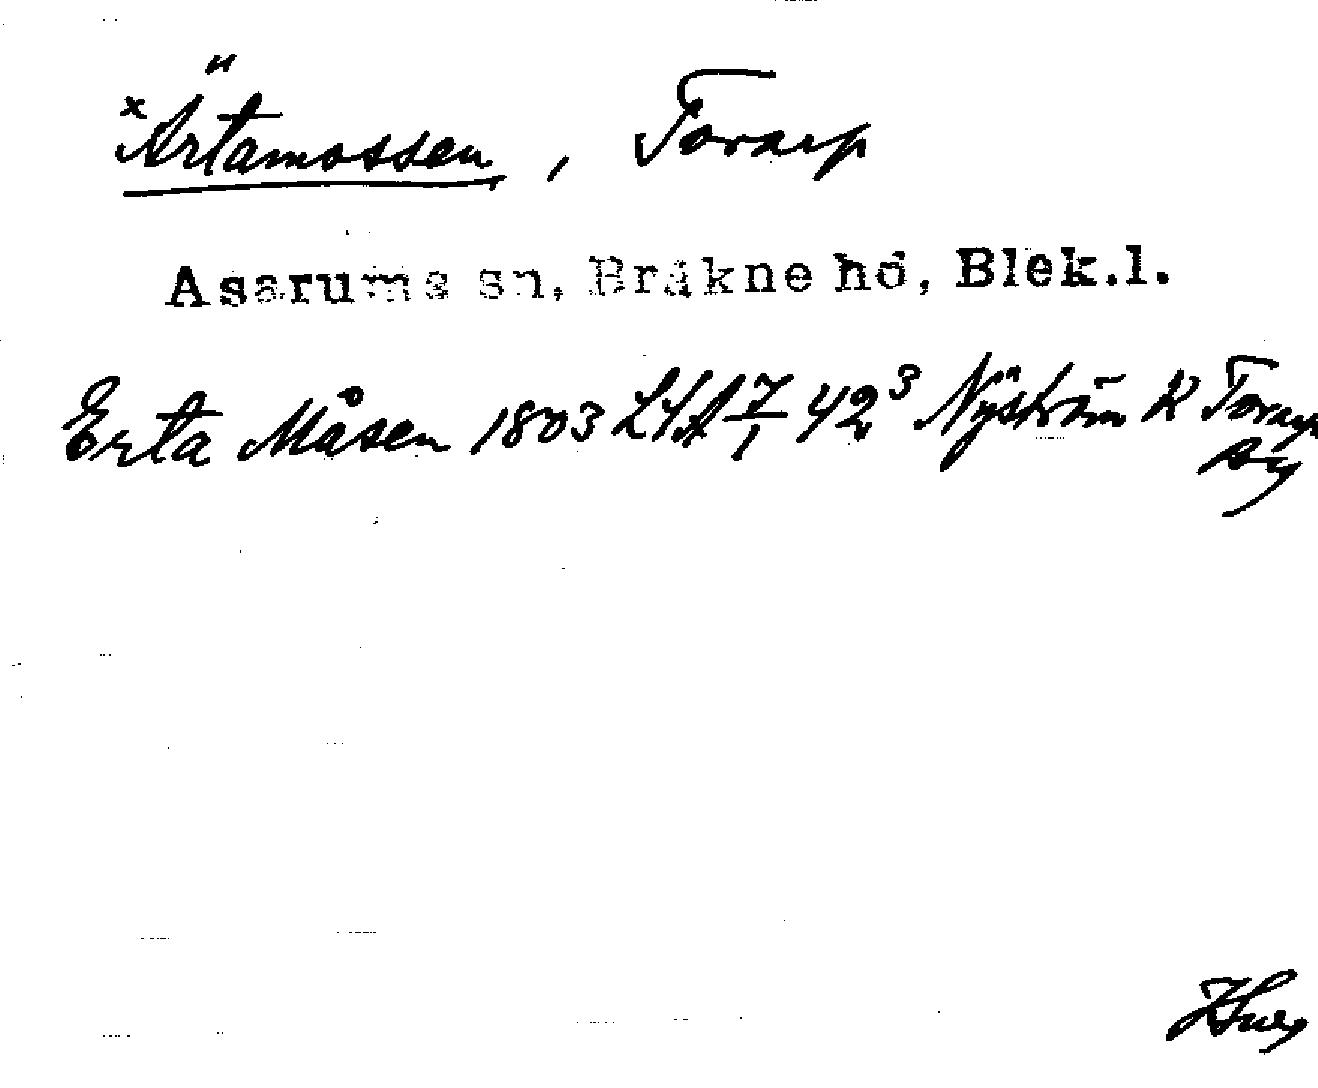 ×Ärtamossen, Torarp
Asarums sn, Bräkne hd, Blek.l.
Erta Måsen 1803 LSA 7/1 42³ Nyström K Torarp
by